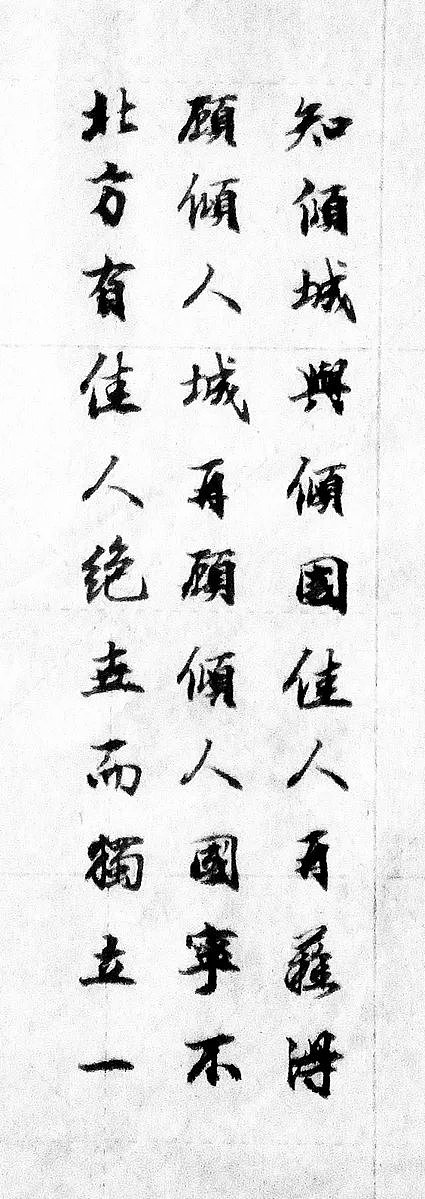 北方有佳人絕世而獨立一
顧傾人城再顧傾人國寧不
知傾城與傾國佳人再難得